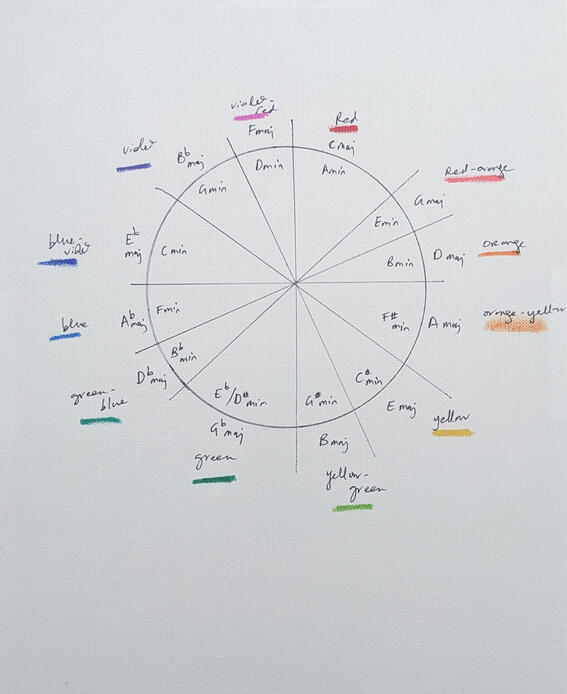 violet-
red
Fmaj
Dmin
Red
Cmaj
Amin
Red-orange
Gmaj
Emin
orange
Dmaj
Bmin
orange-yellow
Amaj
F#
min
yellow
Emaj
C#
min
yellow-
green
Bmaj
G#min
green
Gb
maj
Eb/D#min
green-
blue
Dbmaj
Bb
min
blue
Abmaj
Fmin
blue-
violet
Eb
maj
Cmin
violet
Bbmaj
Gmin